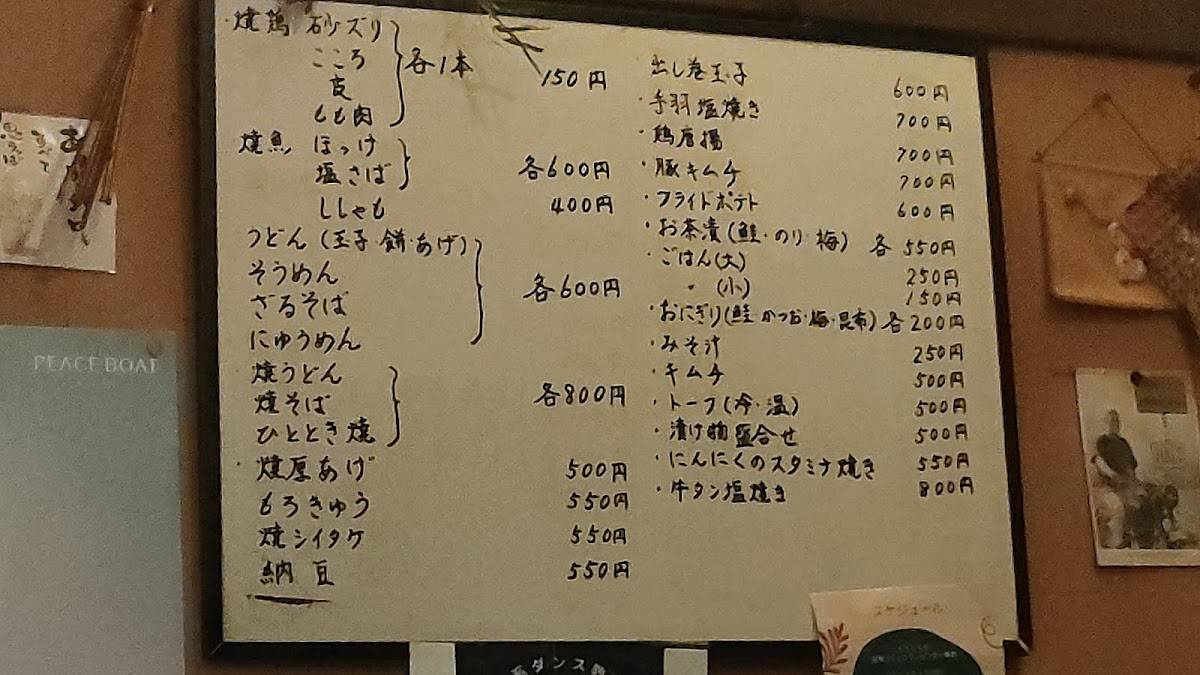 焼鶏 砂ズリ
こころ
皮
もも肉
各1本 150円
焼魚 ほっけ
塩さば
各600円
ししゃも 400円
うどん (玉子・餅・あげ)
そうめん
ざるそば
にゅうめん
各600円
焼うどん
焼そば
ひととき焼
各800円
・焼厚あげ 500円
もろきゅう 550円
焼シイタケ 550円
納豆 550円
出し巻玉子 600円
・手羽塩焼き 700円
・鶏唐揚 700円
・豚キムチ 700円
・フライドポテト 600円
・お茶漬(鮭・のり・梅) 各550円
・ごはん(大) 250円
〃 (小) 150円
・おにぎり(鮭 かつお・梅・昆布) 各200円
・みそ汁 250円
・キムチ 500円
・トーフ(冷・温) 500円
・漬け物盛合せ 500円
・にんにくのスタミナ焼き 550円
・牛タン塩焼き 800円
PEACE BOAT
スケジュール
ダンス